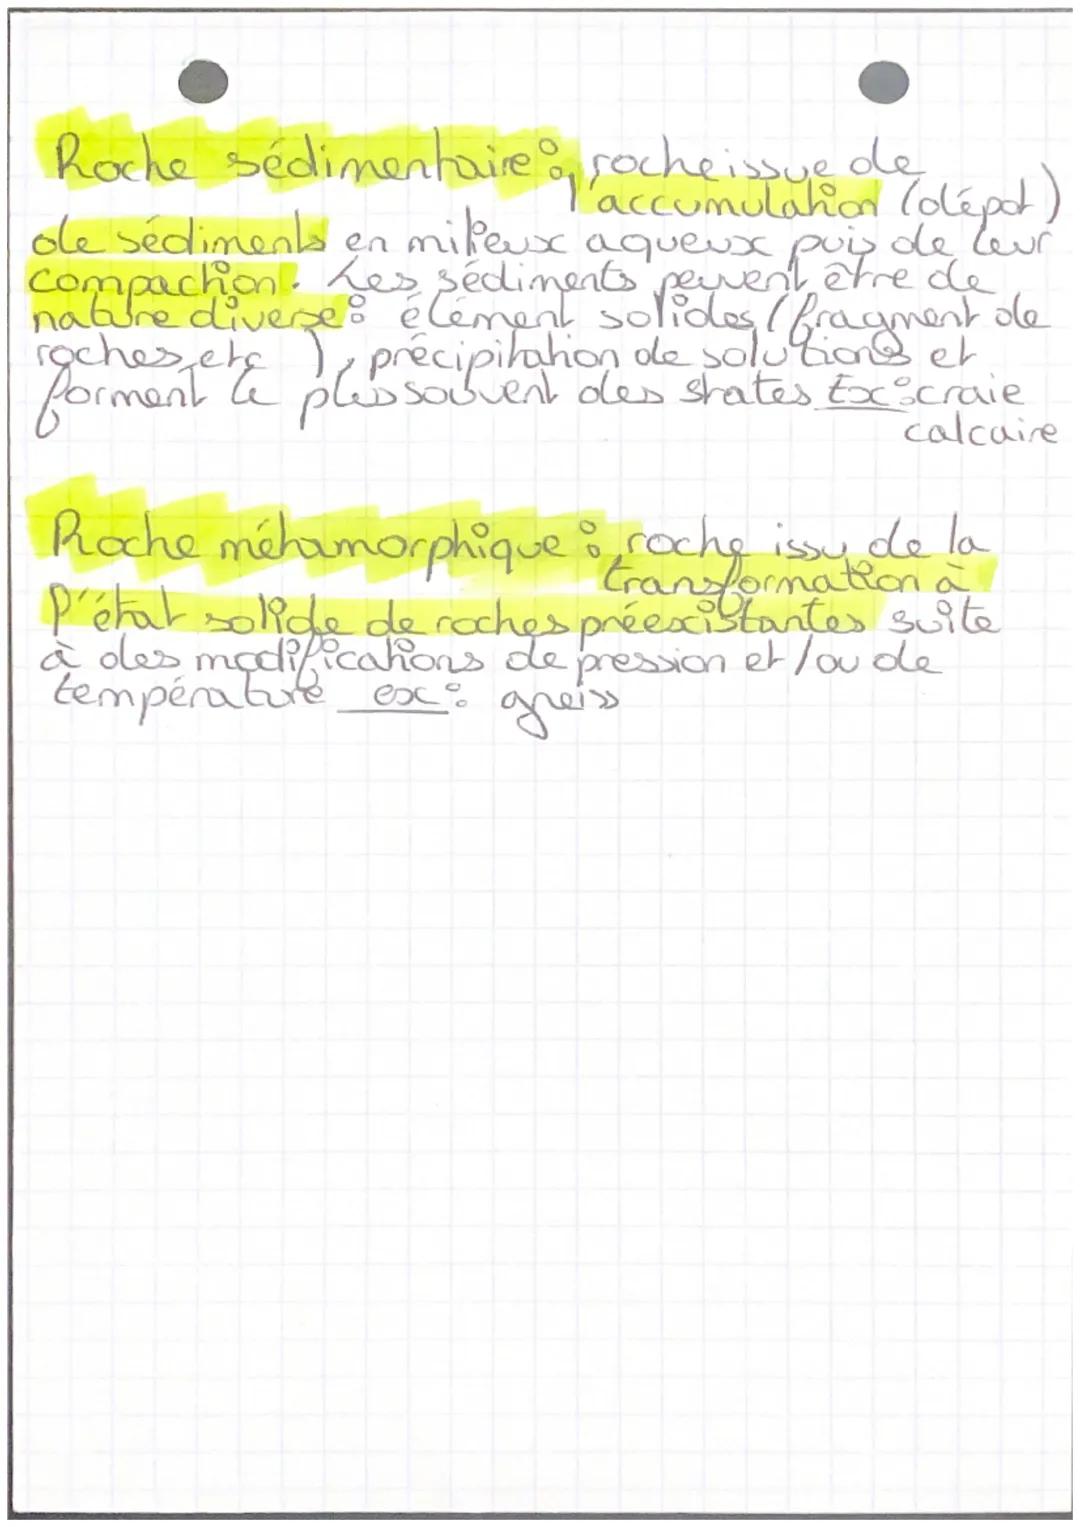 Roche sédimentaire : roche issue de
l'accumulation (dépot)
de sédiments en milieux aqueux puis de leur
compaction. Les sédiments peuvent être de
nature diverse : élément solides (fragment de
roches, etc ), précipitation de solutions et
forment le plus souvent des strates Ex : craie
calcaire
Roche métamorphique : roche issu de la
transformation à
l'état solide de roches préexistantes suite
à des modifications de pression et /ou de
température ex : gneiss